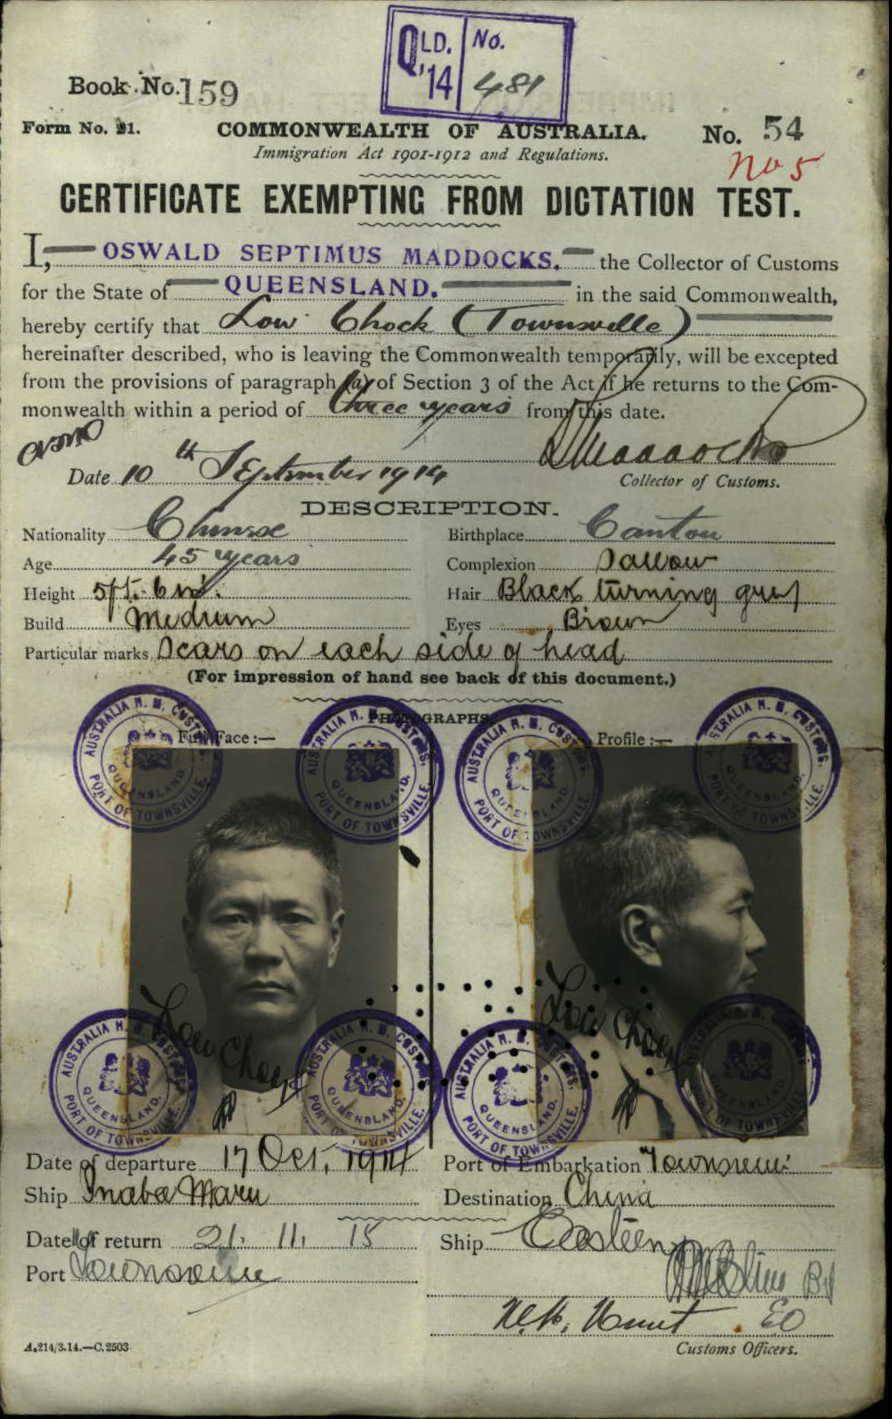 QLD. '14 No. 481
Book No. 159
Form No. 21. COMMONWEALTH OF AUSTRALIA. No. 54
Immigration Act 1901-1912 and Regulations. No 5
CERTIFICATE EXEMPTING FROM DICTATION TEST.
I, OSWALD SEPTIMUS MADDOCKS. the Collector of Customs
for the State of QUEENSLAND. in the said Commonwealth,
hereby certify that Low Chock (Townsville)
hereinafter described, who is leaving the Commonwealth temporarily, will be excepted
from the provisions of paragraph (a) of Section 3 of the Act if he returns to the Com-
monwealth within a period of three years from this date.
Date 10th September 1914
Collector of Customs.
DESCRIPTION.
Nationality Chinese Birthplace Canton
Age 45 years Complexion Sallow
Height 5ft. 6ins. Hair Black turning grey
Build Medium Eyes Brown
Particular marks Scars on each side of head
(For impression of hand see back of this document.)
PHOTOGRAPHS.
Full Face :— Profile :—
AUSTRALIA H. M. CUSTOMS. QUEENSLAND. PORT OF TOWNSVILLE.
AUSTRALIA H. M. CUSTOMS. QUEENSLAND. PORT OF TOWNSVILLE.
AUSTRALIA H. M. CUSTOMS. QUEENSLAND. PORT OF TOWNSVILLE.
AUSTRALIA H. M. CUSTOMS. QUEENSLAND. PORT OF TOWNSVILLE.
Low Chock Low Chock
AUSTRALIA H. M. CUSTOMS. QUEENSLAND. PORT OF TOWNSVILLE.
AUSTRALIA H. M. CUSTOMS. QUEENSLAND. PORT OF TOWNSVILLE.
AUSTRALIA H. M. CUSTOMS. QUEENSLAND. PORT OF TOWNSVILLE.
Date of departure 17 Oct. 1914 Port of Embarkation Townsville
Ship Inaba Maru Destination China
Date of return 21. 11. 15 Ship Eastern
Port Townsville
A.214/3.14.—C.2503 Customs Officers.